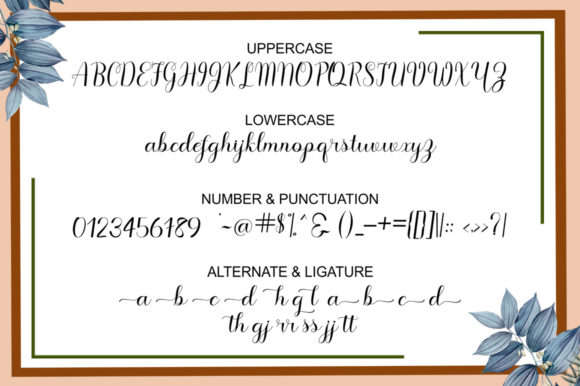 UPPERCASE
ABCDEFGHIJKLMNOPQRSTUVWXYZ
LOWERCASE
abcdefghijklmnopqrstuvwxyz
NUMBER & PUNCTUATION
0123456789 `~@#$%^& ()_-+={[}]||:: <,>.>?/
ALTERNATE & LIGATURE
a b c d h g l a b c d
th gj rr ss jj tt